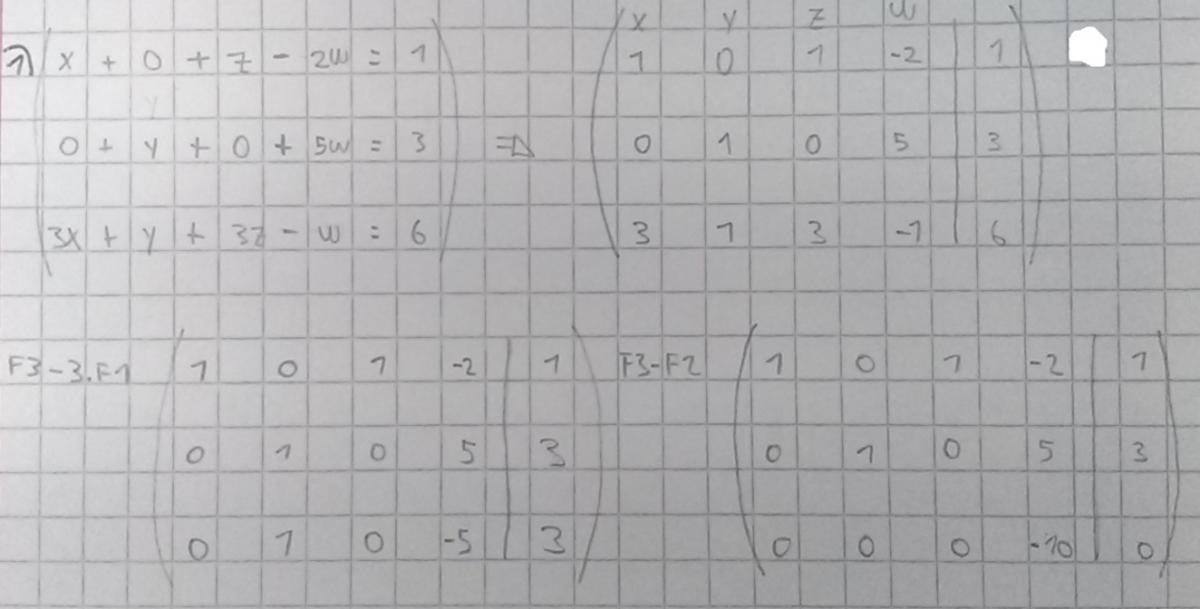 x y z w
1) x + 0 + z - 2w = 1 1 0 1 -2 | 1
0 + y + 0 + 5w = 3 ⇒ 0 1 0 5 | 3
3x + y + 3z - w = 6 3 1 3 -1 | 6
F3-3.F1 1 0 1 -2 | 1 F3-F2 1 0 1 -2 | 1
0 1 0 5 | 3 0 1 0 5 | 3
0 1 0 -5 | 3 0 0 0 -10 | 0